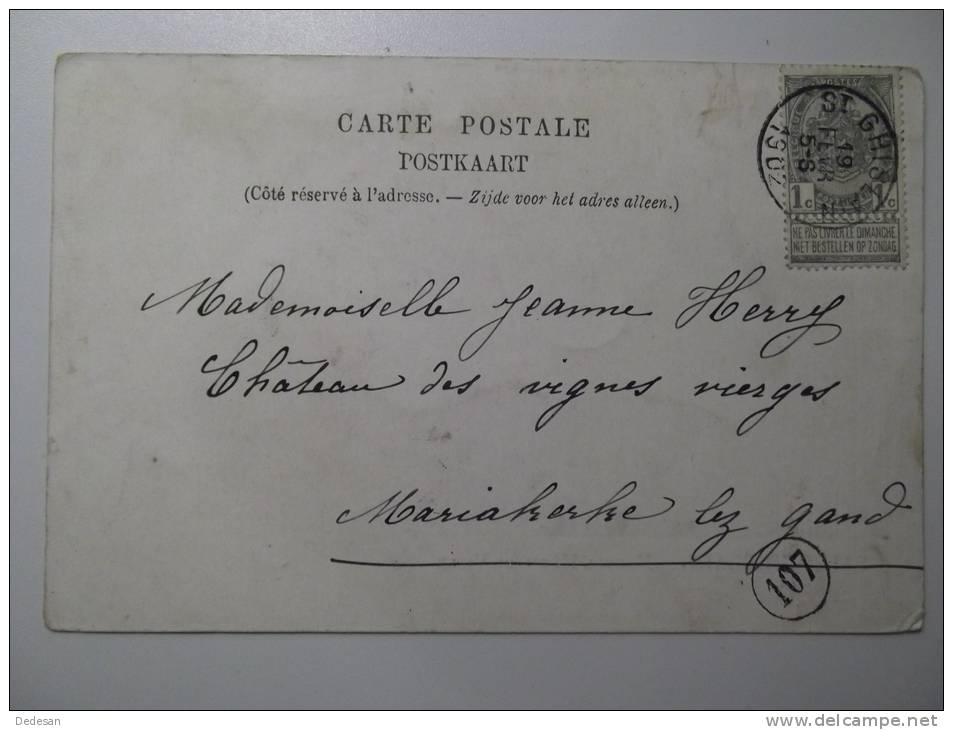 CARTE POSTALE
POSTKAART
(Côté réservé à l'adresse. — Zijde voor het adres alleen.)
POSTES
1c 1c
NE PAS LIVRER LE DIMANCHE
NIET BESTELLEN OP ZONDAG
ST GHISLAIN
19
FEVR
5-6
1902
Mademoiselle Jeanne Herry
Château des vignes vierges
Mariakerke lez gand
107
Dedesan
www.delcampe.net